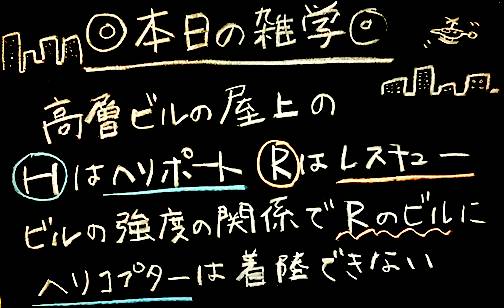 ◎本日の雑学◎
高層ビルの屋上の
Ⓗはヘリポート Ⓡはレスキュー
ビルの強度の関係でRのビルに
ヘリコプターは着陸できない